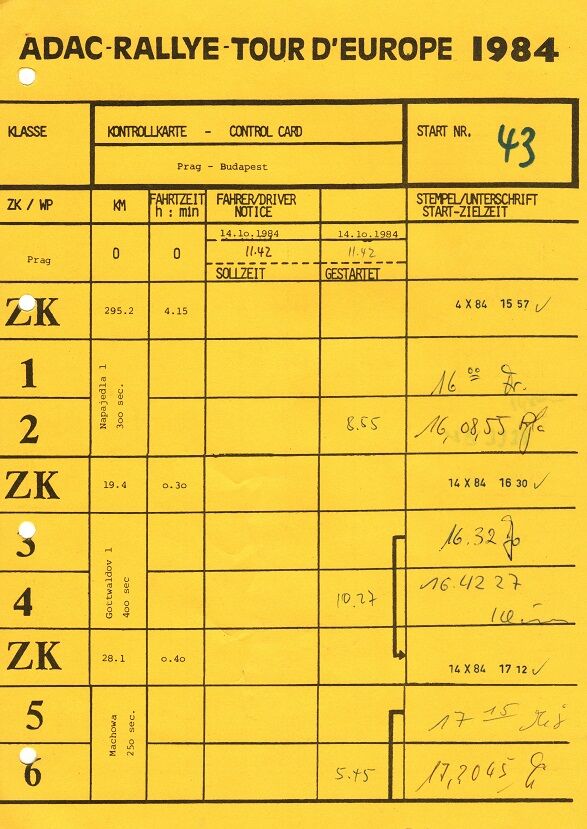 ADAC-RALLYE-TOUR D'EUROPE 1984
KLASSE
KONTROLLKARTE - CONTROL CARD
START NR. 43
Prag - Budapest
ZK / WP
KM
FAHRTZEIT
h : min
FAHRER/DRIVER
NOTICE
STEMPEL/UNTERSCHRIFT
START-ZIELZEIT
Prag
0
0
14.1o.1984
11.42
SOLLZEIT
14.1o.1984
11.42
GESTARTET
ZK
295.2
4.15
4 X 84 15 57
1
Napajedla 1
3oo sec.
16 00
2
8.55
16,08,55
ZK
19.4
o.3o
14 X 84 16 30
3
Gottwaldov 1
4oo sec
16.32
4
10.27
16.42 27
ZK
28.1
o.4o
14 X 84 17 12
5
Machowa
25o sec.
17 15
6
5.45
17,2045